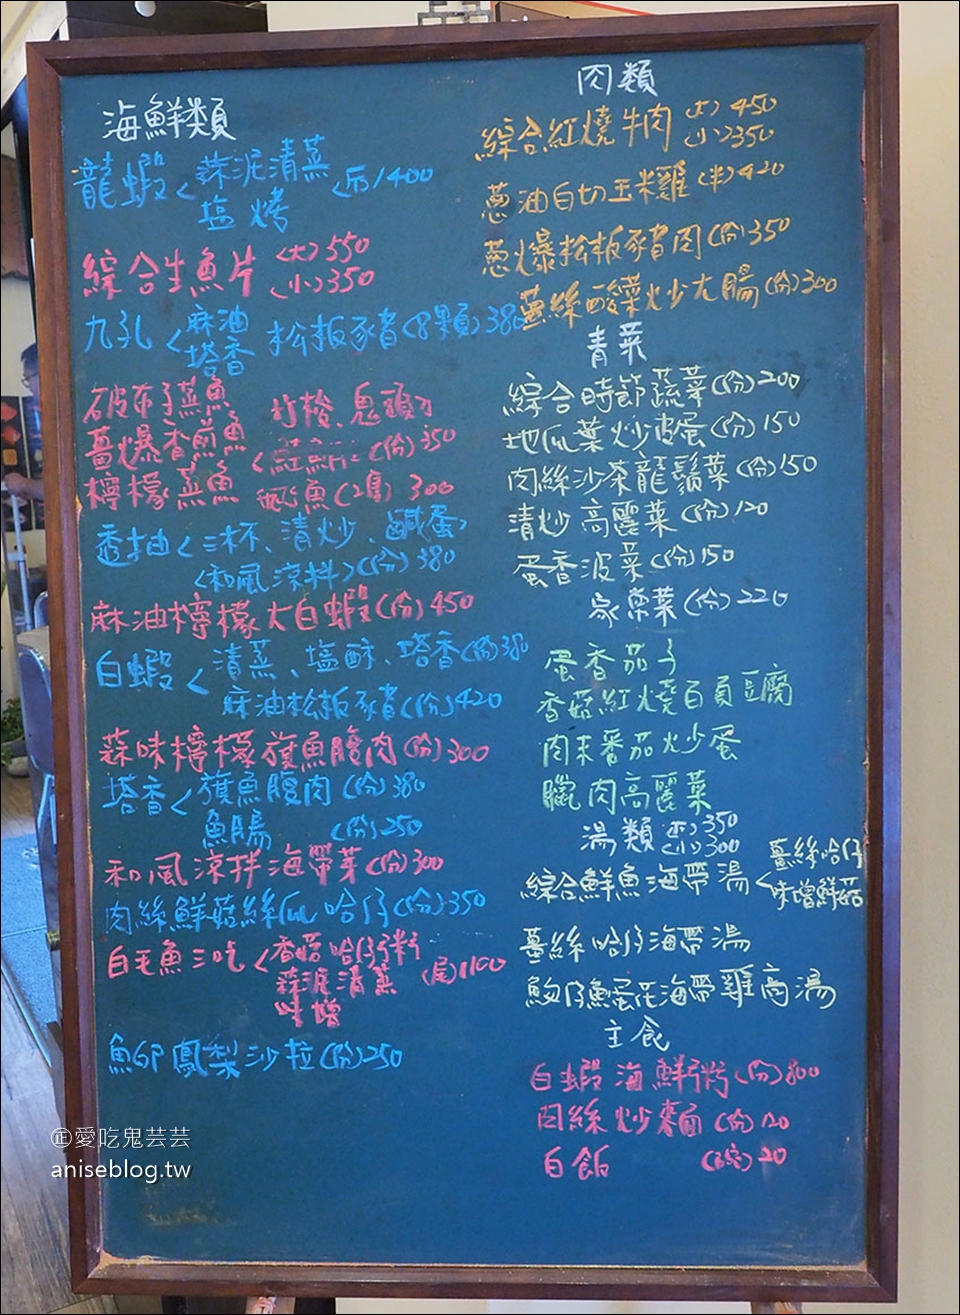 海鮮類
龍蝦<蒜泥清蒸
塩烤
1400
綜合生魚片(大)550
(小)350
九孔<麻油
塔香
松板豬(8顆)380
破布子蒸魚
薑爆香煎魚
檸檬蒸魚
竹梭、鬼頭刀
(份)350
魚(2隻)300
透抽<三杯、清炒、鹹蛋
(和風涼拌)(份)380
麻油檸檬大白蝦(份)450
白蝦<清蒸、塩酥、塔香(份)380
麻油松板豬(份)420
蒜味檸檬旗魚腹肉(份)300
塔香<旗魚腹肉(份)380
魚腸(份)250
和風涼拌海帶芽(份)300
肉絲鮮菇絲瓜哈仔(份)350
白毛魚三吃<香菇哈仔粥
蒜泥清蒸
味增
(尾)1100
魚卵鳳梨沙拉(份)250
肉類
綜合紅燒牛肉(大)450
(小)350
蔥油白切玉米雞(半)420
蔥爆松板豬肉(份)350
薑絲酸菜炒大腸(份)300
青菜
綜合時節蔬菜(份)200
地瓜葉炒皮蛋(份)150
肉絲沙茶龍鬚菜(份)150
清炒高麗菜(份)120
蛋香波菜(份)150
家常菜(份)220
蛋香茄子
香菇紅燒百頁豆腐
肉末番茄炒蛋
臘肉高麗菜
湯類(大)350
(小)300
綜合鮮魚海帶湯<薑絲哈仔
味增鮮菇
薑絲哈仔海帶湯
魩仔魚蛋花海帶雞高湯
主食
白蝦海鮮粥(份)300
肉絲炒麵(份)120
白飯(碗)20
㊣愛吃鬼芸芸
aniseblog.tw